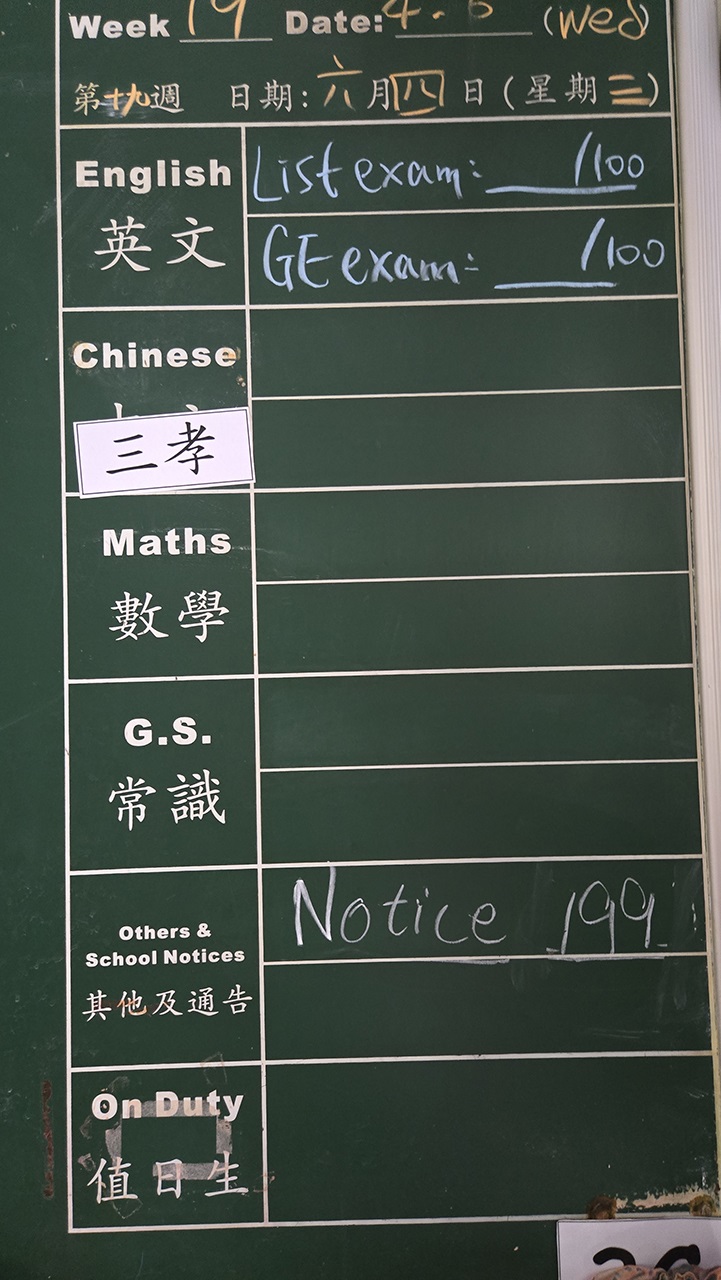 Week 19 Date: 4.6 (Wed)
第十九週 日期: 六月四日(星期三)
English
英文
List exam: ___/100
GE exam: ___/100
Chinese
三孝
Maths
數學
G.S.
常識
Others &
School Notices
其他及通告
Notice 199
On Duty
值日生